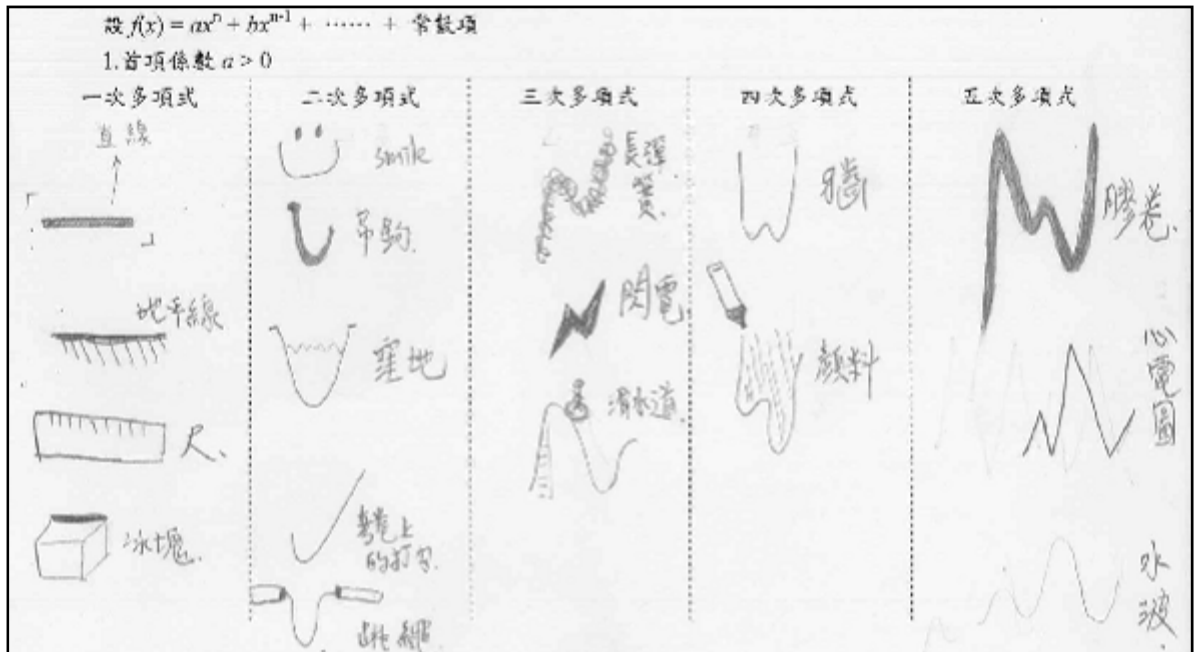 設 f(x) = axⁿ + bxⁿ⁻¹ + …… + 常數項
1.首項係數 a > 0
一次多項式
直線
地平線
尺
冰塊
二次多項式
smile
吊鉤
窪地
考卷上
的打勾
跳繩
三次多項式
閃電
滑水道
四次多項式
牙齒
顏料
五次多項式
膠卷
心電圖
水波